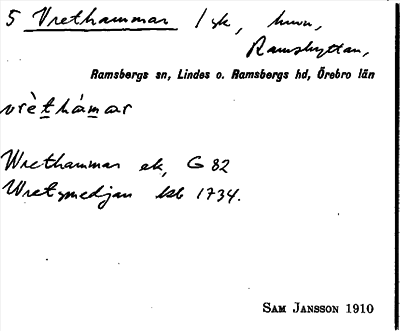 5 Vrethammar 1 yk, hmn,
Ramshyttan,
Ramsbergs sn, Lindes o. Ramsbergs hd, Örebro län
vrèthámar
Wrethammar ek, G 82
Wretsmedjan ksb 1734.
SAM JANSSON 1910